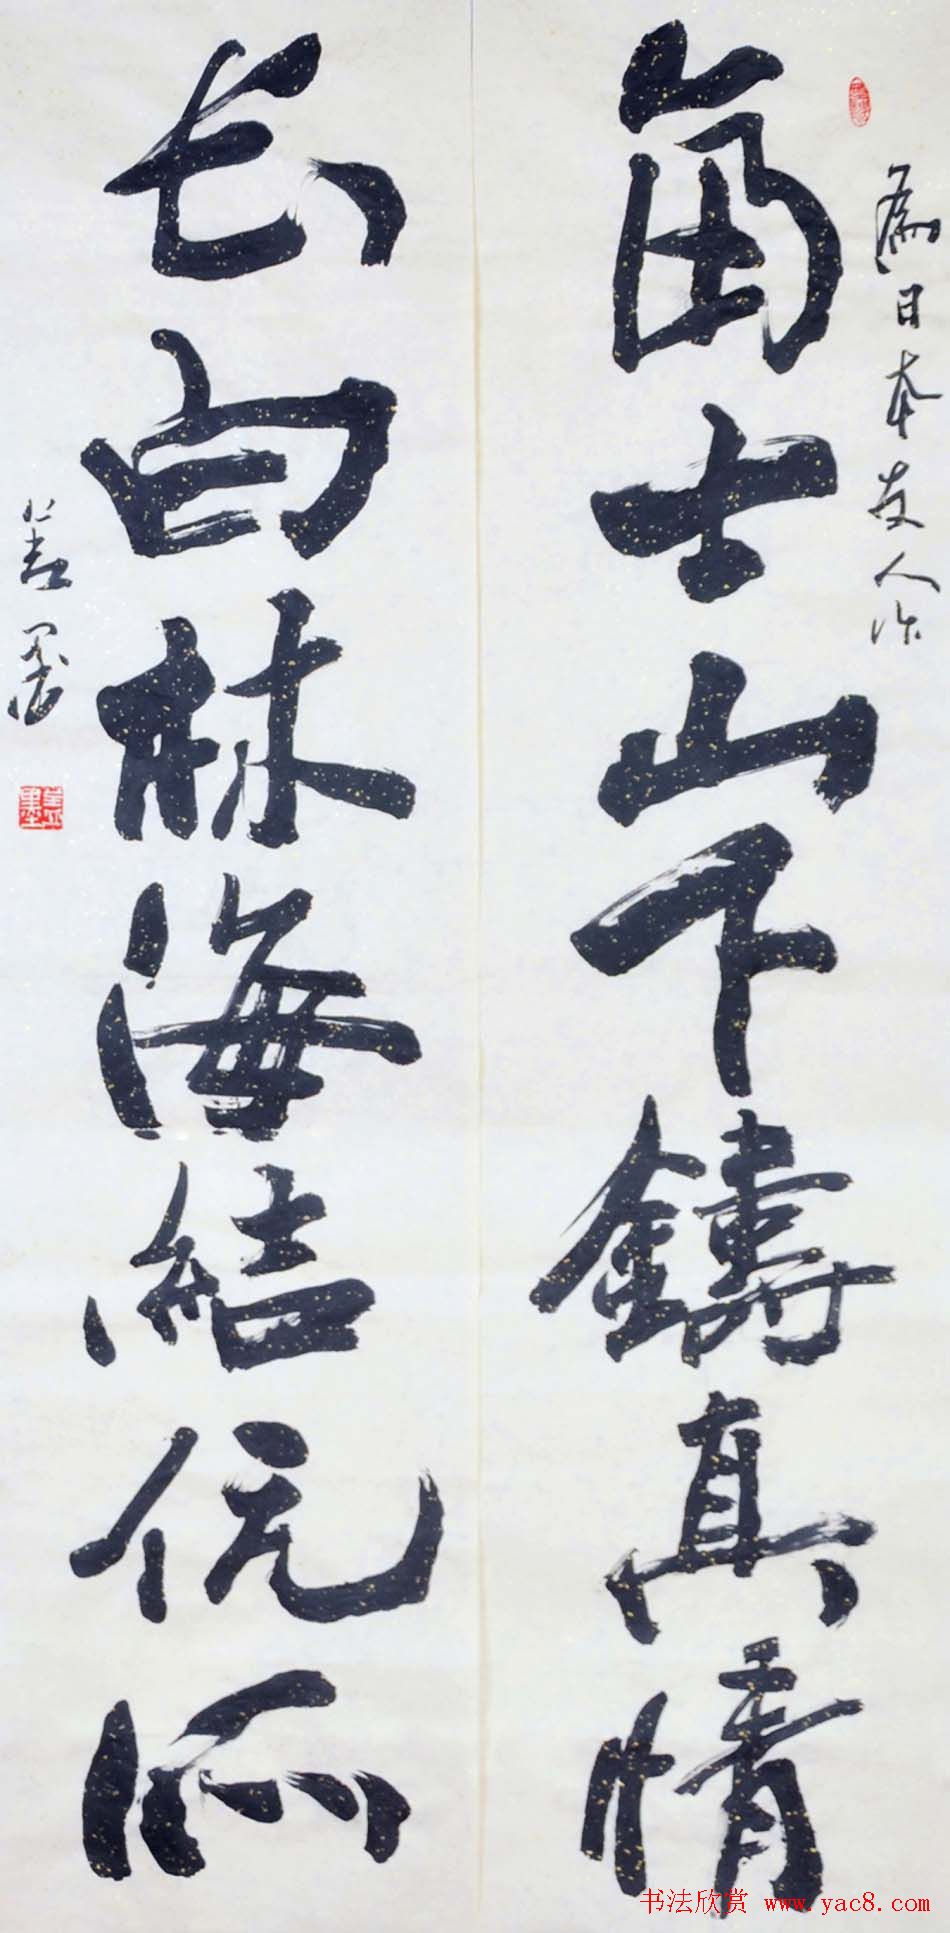 為日本友人作
富士山下鑄真情
长白林海結伉俪
墨
书法欣赏 www.yac8.com